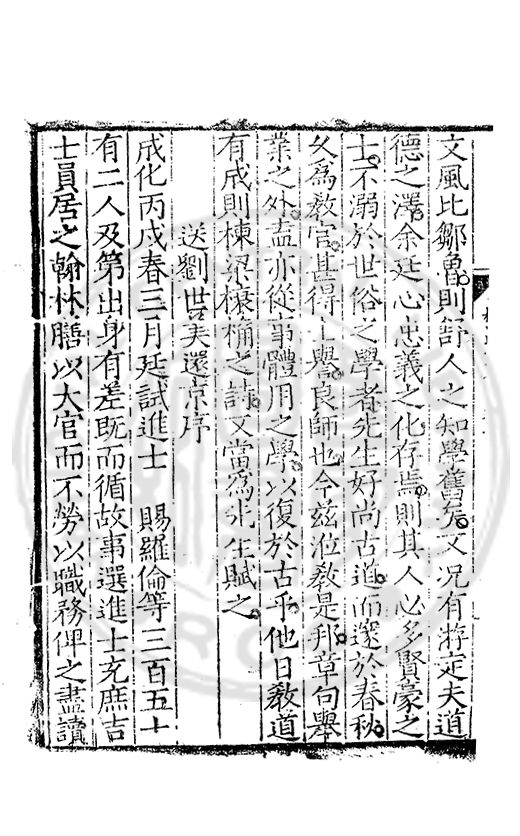 文風比鄒魯則舒人之知學舊矣又况有游定夫道
德之澤余廷心忠義之化存焉則其人必多賢豪之
士不溺於世俗之學者先生好尚古道而邃於春秋
久為教官甚得士譽良師也今兹涖教是邦章句舉
業之外盍亦從事體用之學以復於古乎他日教道
有成則棟梁榱桷之詩又當為先生賦之
送劉世美還京序
成化丙戌春三月廷試進士 賜羅倫等三百五十
有二人及第出身有差既而循故事選進士充庶吉
士員居之翰林膳以大官而不勞以職務俾之盡讀